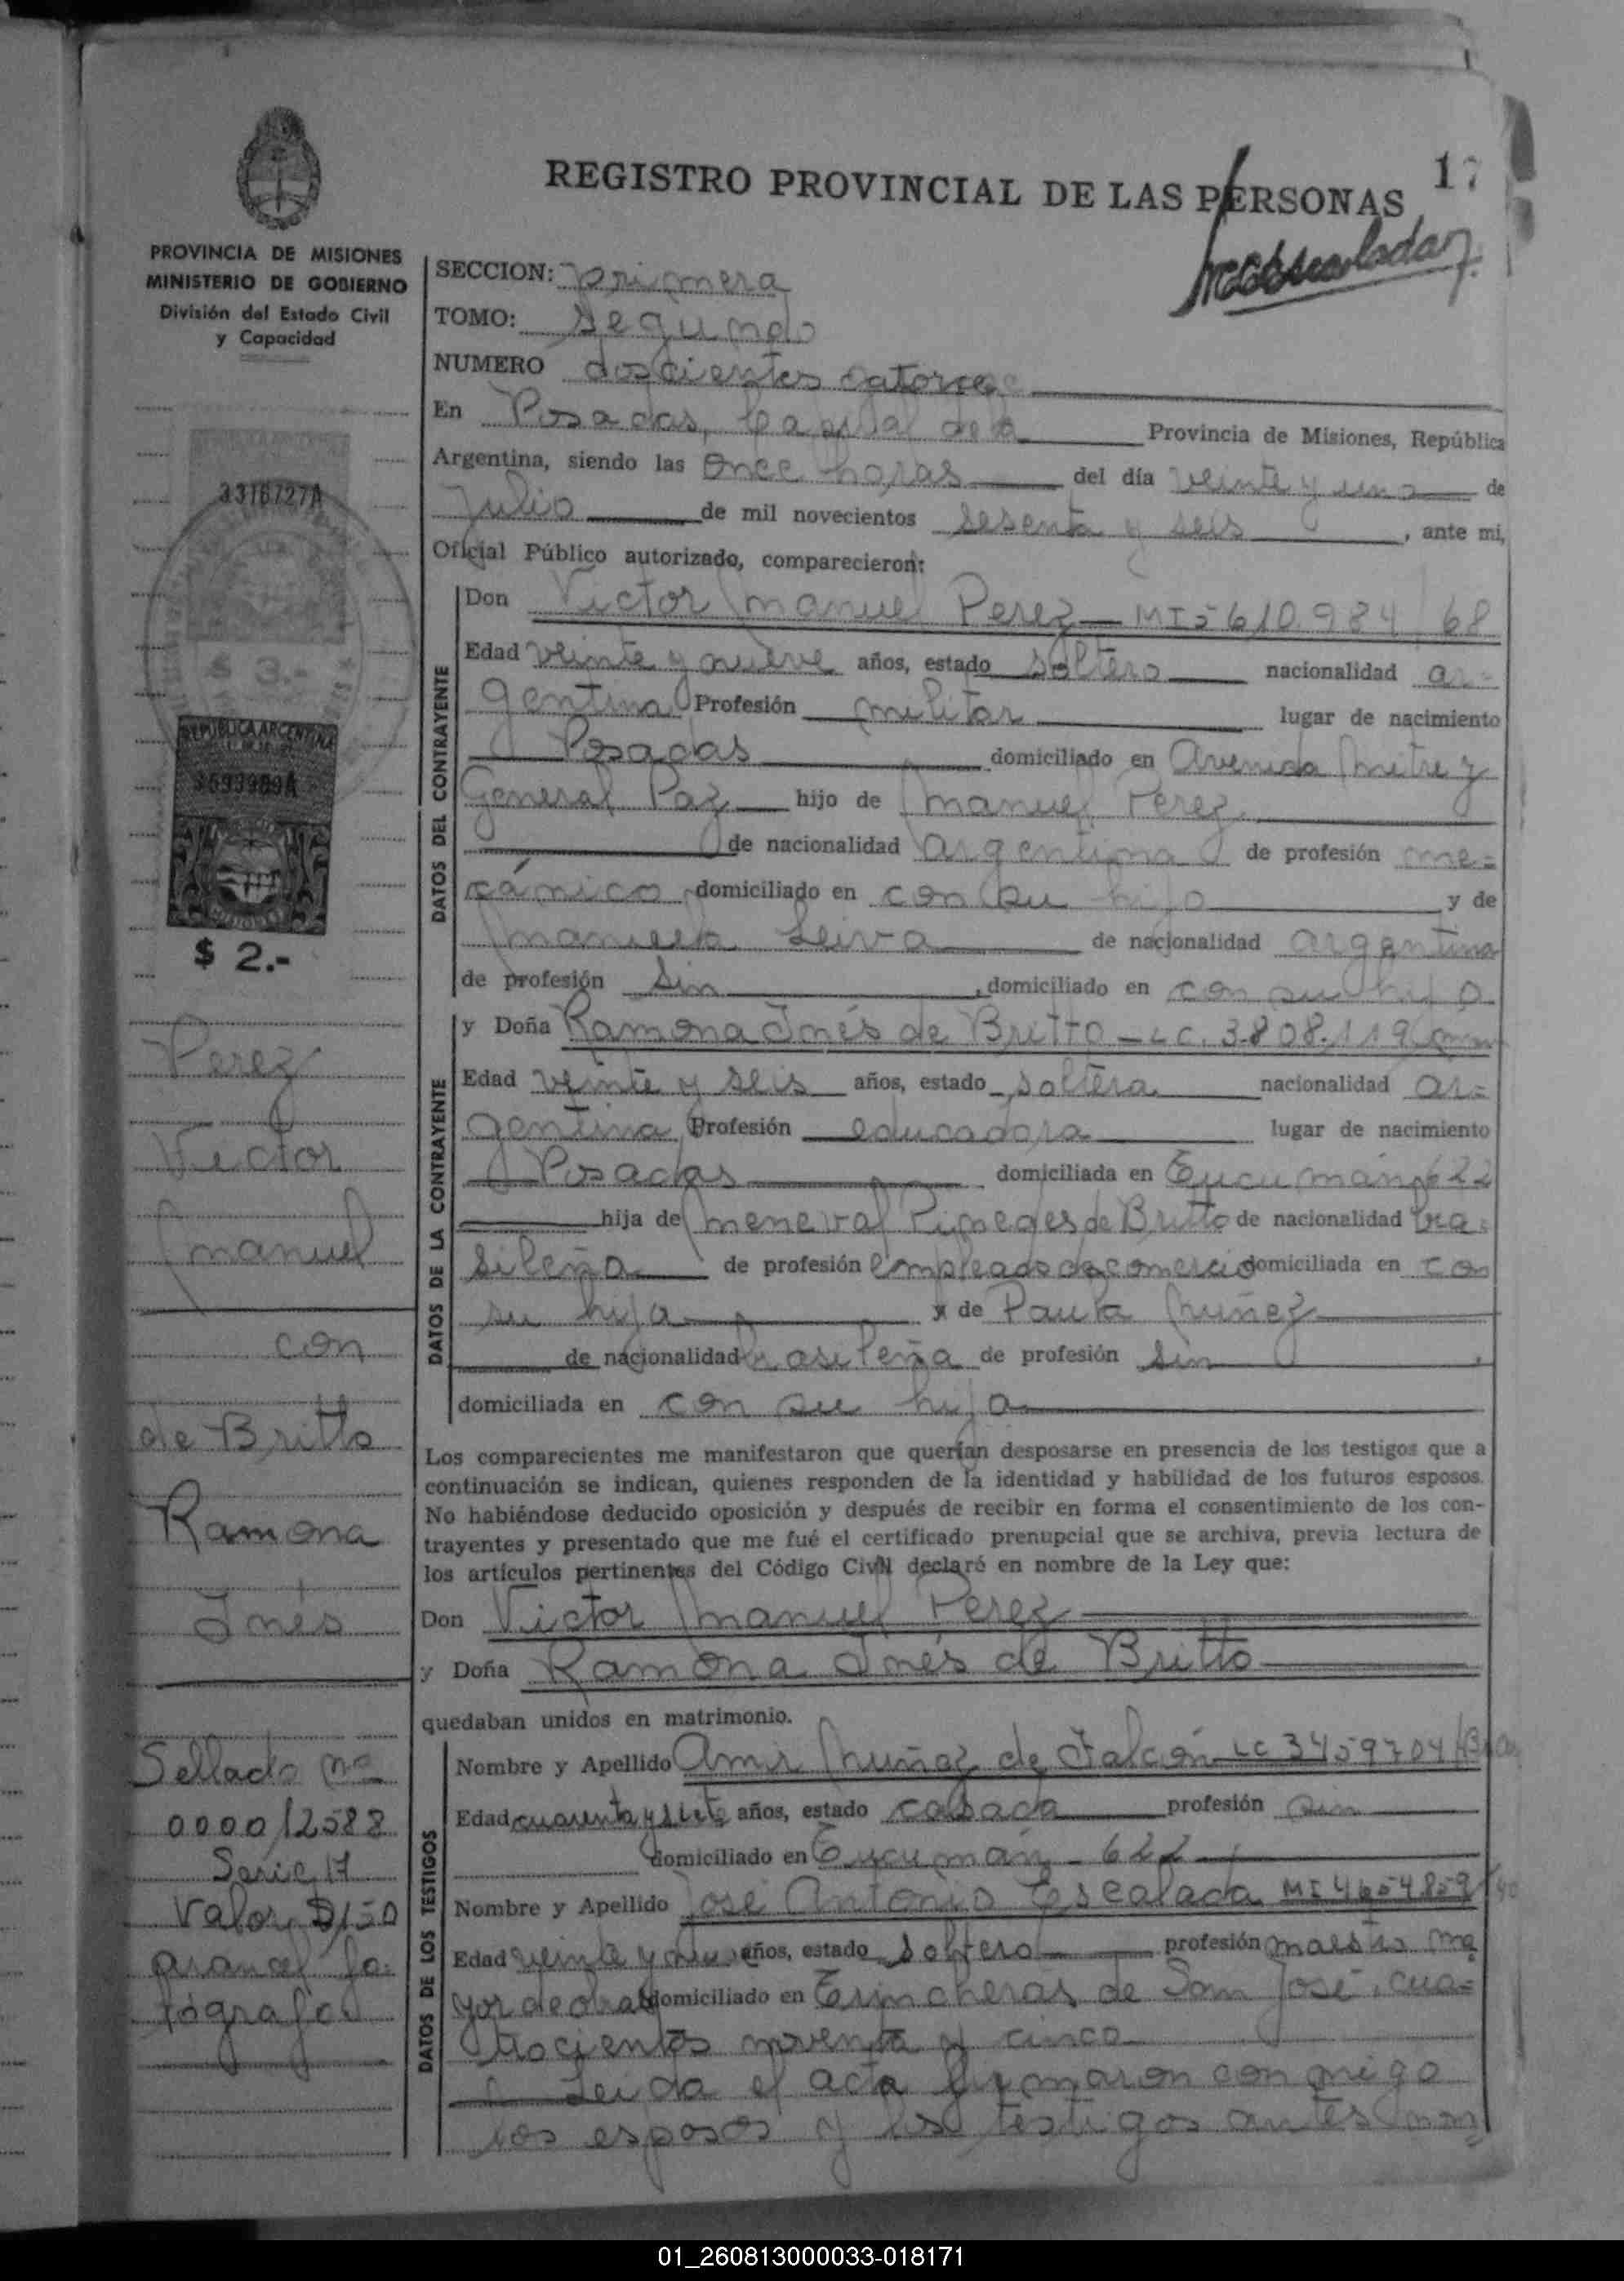 REGISTRO PROVINCIAL DE LAS PERSONAS
17
PROVINCIA DE MISIONES
MINISTERIO DE GOBIERNO
División del Estado Civil
y Capacidad
3316727A
$ 3.-
REPUBLICA ARGENTINA
MISIONES
$ 2.-
Perez
Victor
Manuel
con
de Britto
Ramona
Inés
Sellado Nº
0000/2588
Serie 17
Valor $150
arancel fo=
tógrafos
SECCION: primera
TOMO: segundo
NUMERO doscientos catorce
En Posadas, Capital de la Provincia de Misiones, República
Argentina, siendo las once horas del día veinte y uno de
Julio de mil novecientos sesenta y seis, ante mi,
Oficial Público autorizado, comparecieron:
DATOS DEL CONTRAYENTE
Don Victor Manuel Perez — MI 5610984/68
Edad veinte y nueve años, estado soltero nacionalidad ar=
gentina Profesión militar lugar de nacimiento
Posadas domiciliado en Avenida Mitre y
General Paz hijo de Manuel Perez
de nacionalidad argentina de profesión me=
cánico domiciliado en con su hijo y de
Manuela Leiva de nacionalidad argentina
de profesión sin, domiciliado en con su hijo
DATOS DE LA CONTRAYENTE
y Doña Ramona Inés de Britto — LC. 3.808.119
Edad veinte y seis años, estado soltera nacionalidad ar=
gentina Profesión educadora lugar de nacimiento
Posadas domiciliada en Tucumán 622
hija de Meneval Pimedes de Britto de nacionalidad bra=
sileña de profesión empleado de comercio domiciliada en con
su hija y de Paula Nuñez
de nacionalidad brasileña de profesión sin,
domiciliada en con su hija
Los comparecientes me manifestaron que querían desposarse en presencia de los testigos que a
continuación se indican, quienes responden de la identidad y habilidad de los futuros esposos.
No habiéndose deducido oposición y después de recibir en forma el consentimiento de los con-
trayentes y presentado que me fué el certificado prenupcial que se archiva, previa lectura de
los artículos pertinentes del Código Civil declaré en nombre de la Ley que:
Don Victor Manuel Perez
y Doña Ramona Inés de Britto
quedaban unidos en matrimonio.
DATOS DE LOS TESTIGOS
Nombre y Apellido Nuñez de Falcón LC 3459704
Edad cuarenta y siete años, estado casada profesión sin
domiciliado en Tucumán - 622
Nombre y Apellido José Antonio Escalada MI 4654859
Edad veinte y años, estado soltero profesión maestro ma
yor de obras domiciliado en Trincheras de San José, cua=
trocientos noventa y cinco
Leida el acta firmaron conmigo
los esposos y los testigos antes nom=
01_260813000033-018171